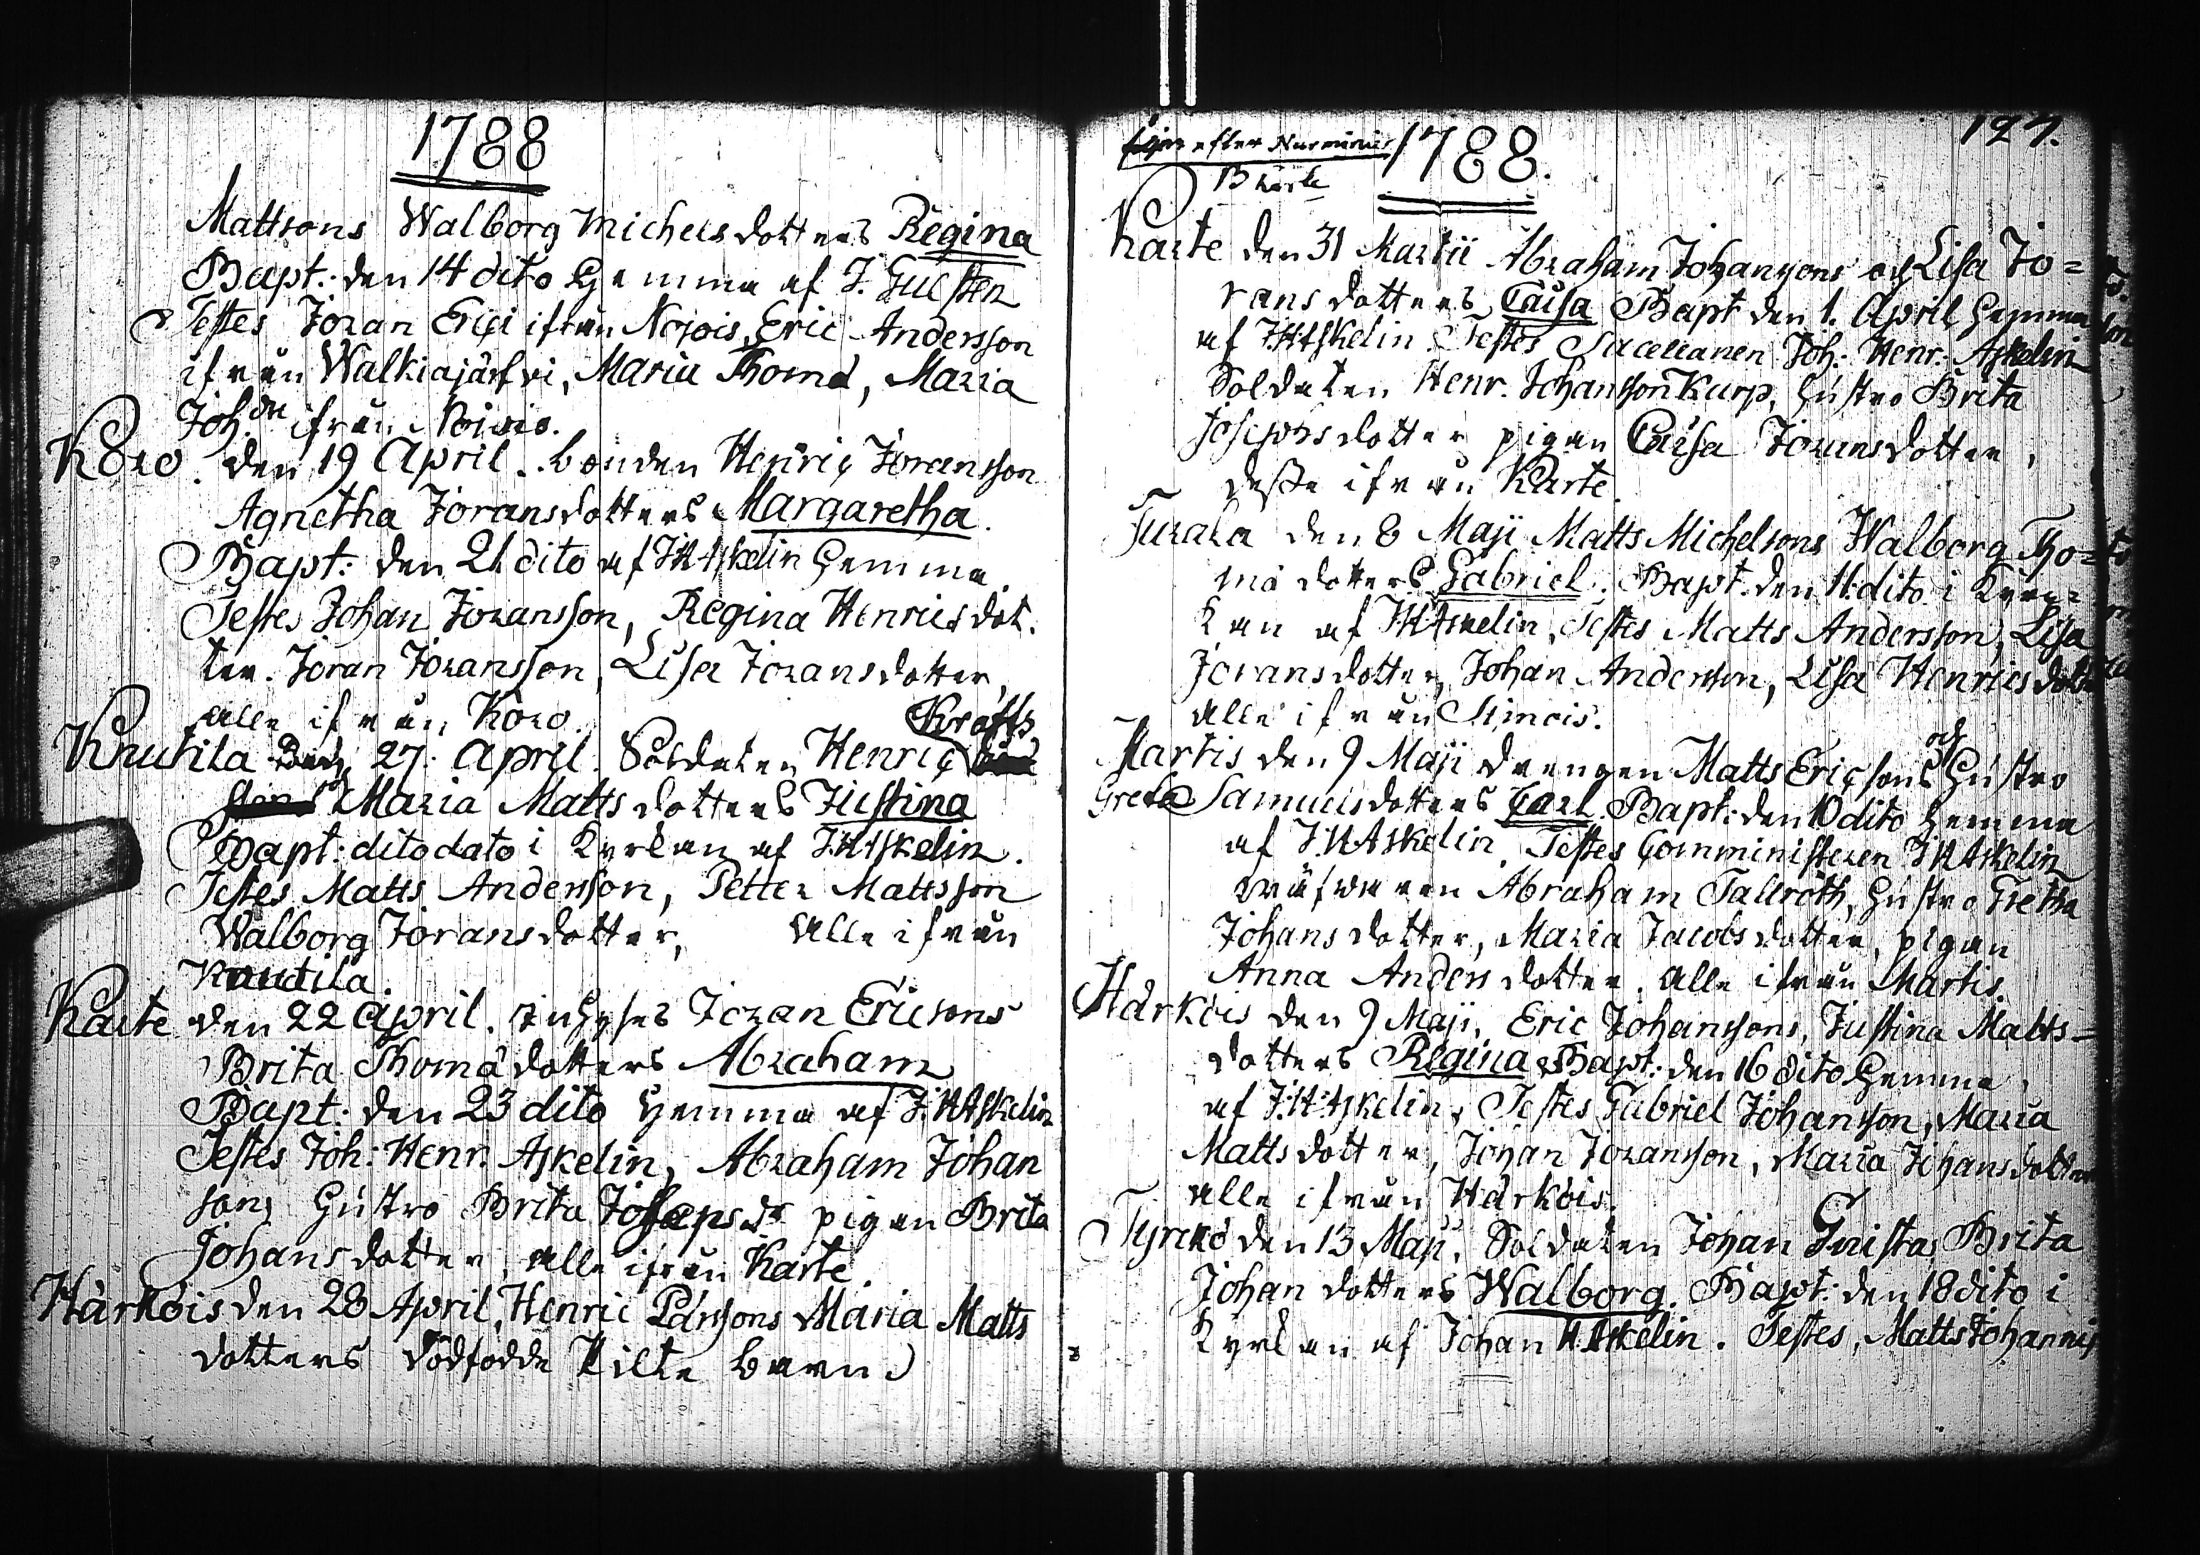 1788
Mattsons Walborg Michelsdotters Regina
Bapt: den 14 dito Hemma af J. Gusten
Testes Jöran Erici ifrån Nojois, Eric Andersson
ifrån Walkiajärfvi, Maria Thomæ, Maria
Joh:dr ifrån Noiois.
Koro. den 19 April. bonden Henriç Joransson
Agnetha Joransdotters Margaretha.
Bapt: den 21 dito af J:H:Askelin Hemma.
Testes Johan Joransson, Regina Henricsdot.
ter. Joran Joransson, Lisa Joransdotter,
alle ifrån Koro.
Krofts
Knutila den 27. April. Soldaten Henriç
Maria Mattsdotters Justina
Bapt: dito dato i Kyrkan af J:H:Askelin.
Testes Matts Andersson, Petter Mattsson
Walborg Joransdotter, alle ifrån
Knutila.
Karte den 22 April. inhyses Joran Ericsons
Brita Thomædotters Abraham
Bapt: den 23 dito hemma af J:H:Askelin
Testes Joh: Henr. Askelin, Abraham Johan
sons Hustro Brita Josepsdr pigan Brita
Johansdotter, alle ifrån Karte.
Harkois den 28 April, Henric Pärsons Maria Matts
dotters dödfödde Pilte barn
127.
efter Nurminis
B Karte
1788.
Karte den 31 Martii Abraham Johansons och Lisa Jo=
ransdotters Caisa Bapt den 1. April Hemma
af J:H:Askelin Testes Sacellanen Joh: Henr: Askelin
Soldaten Henr. Johansson Kurp, Hustro Brita
Josephsdotter pigan Caisa Joransdotter,
desse ifrån Karte.
Jurala den 8 Maji Matts Michelsons Walborg Tho=
mædotters Gabriel. Bapt. den 11. dito i Kyr=
kan af J:H:Askelin, Testes Matts Andersson, Lisa
Joransdotter, Johan Andersson, Lisa Henricsdotter
alle ifrån Simois.
Martis den 9 Maji drengen Matts Eriçsons och Hustro
Greta Samuelsdotters Carl. Bapt: den 10 dito Hemma
af J.H.Askelin. Testes Comministeren J H Askelin
Abraham Tallroth, Hustro Gretha
Johansdotter, Maria Jacobsdotter, pigan
Anna Andersdotter. alle ifrån Martis.
Harkois den 9 Maji, Eric Johanssons, Justina Matts=
dotters Regina Bapt: den 16 dito Hemma,
af J:H:Askelin, Testes Gabriel Johansson, Maria
Mattsdotter, Johan Joransson, Maria Johansdotter
alle ifrån Harkois.
den 13 Maji. Soldaten Johan Brita
Johan dotters Walborg. Bapt: den 18 dito i
Kyrkan af Johan H.Askelin. Testes, Matts Johannis